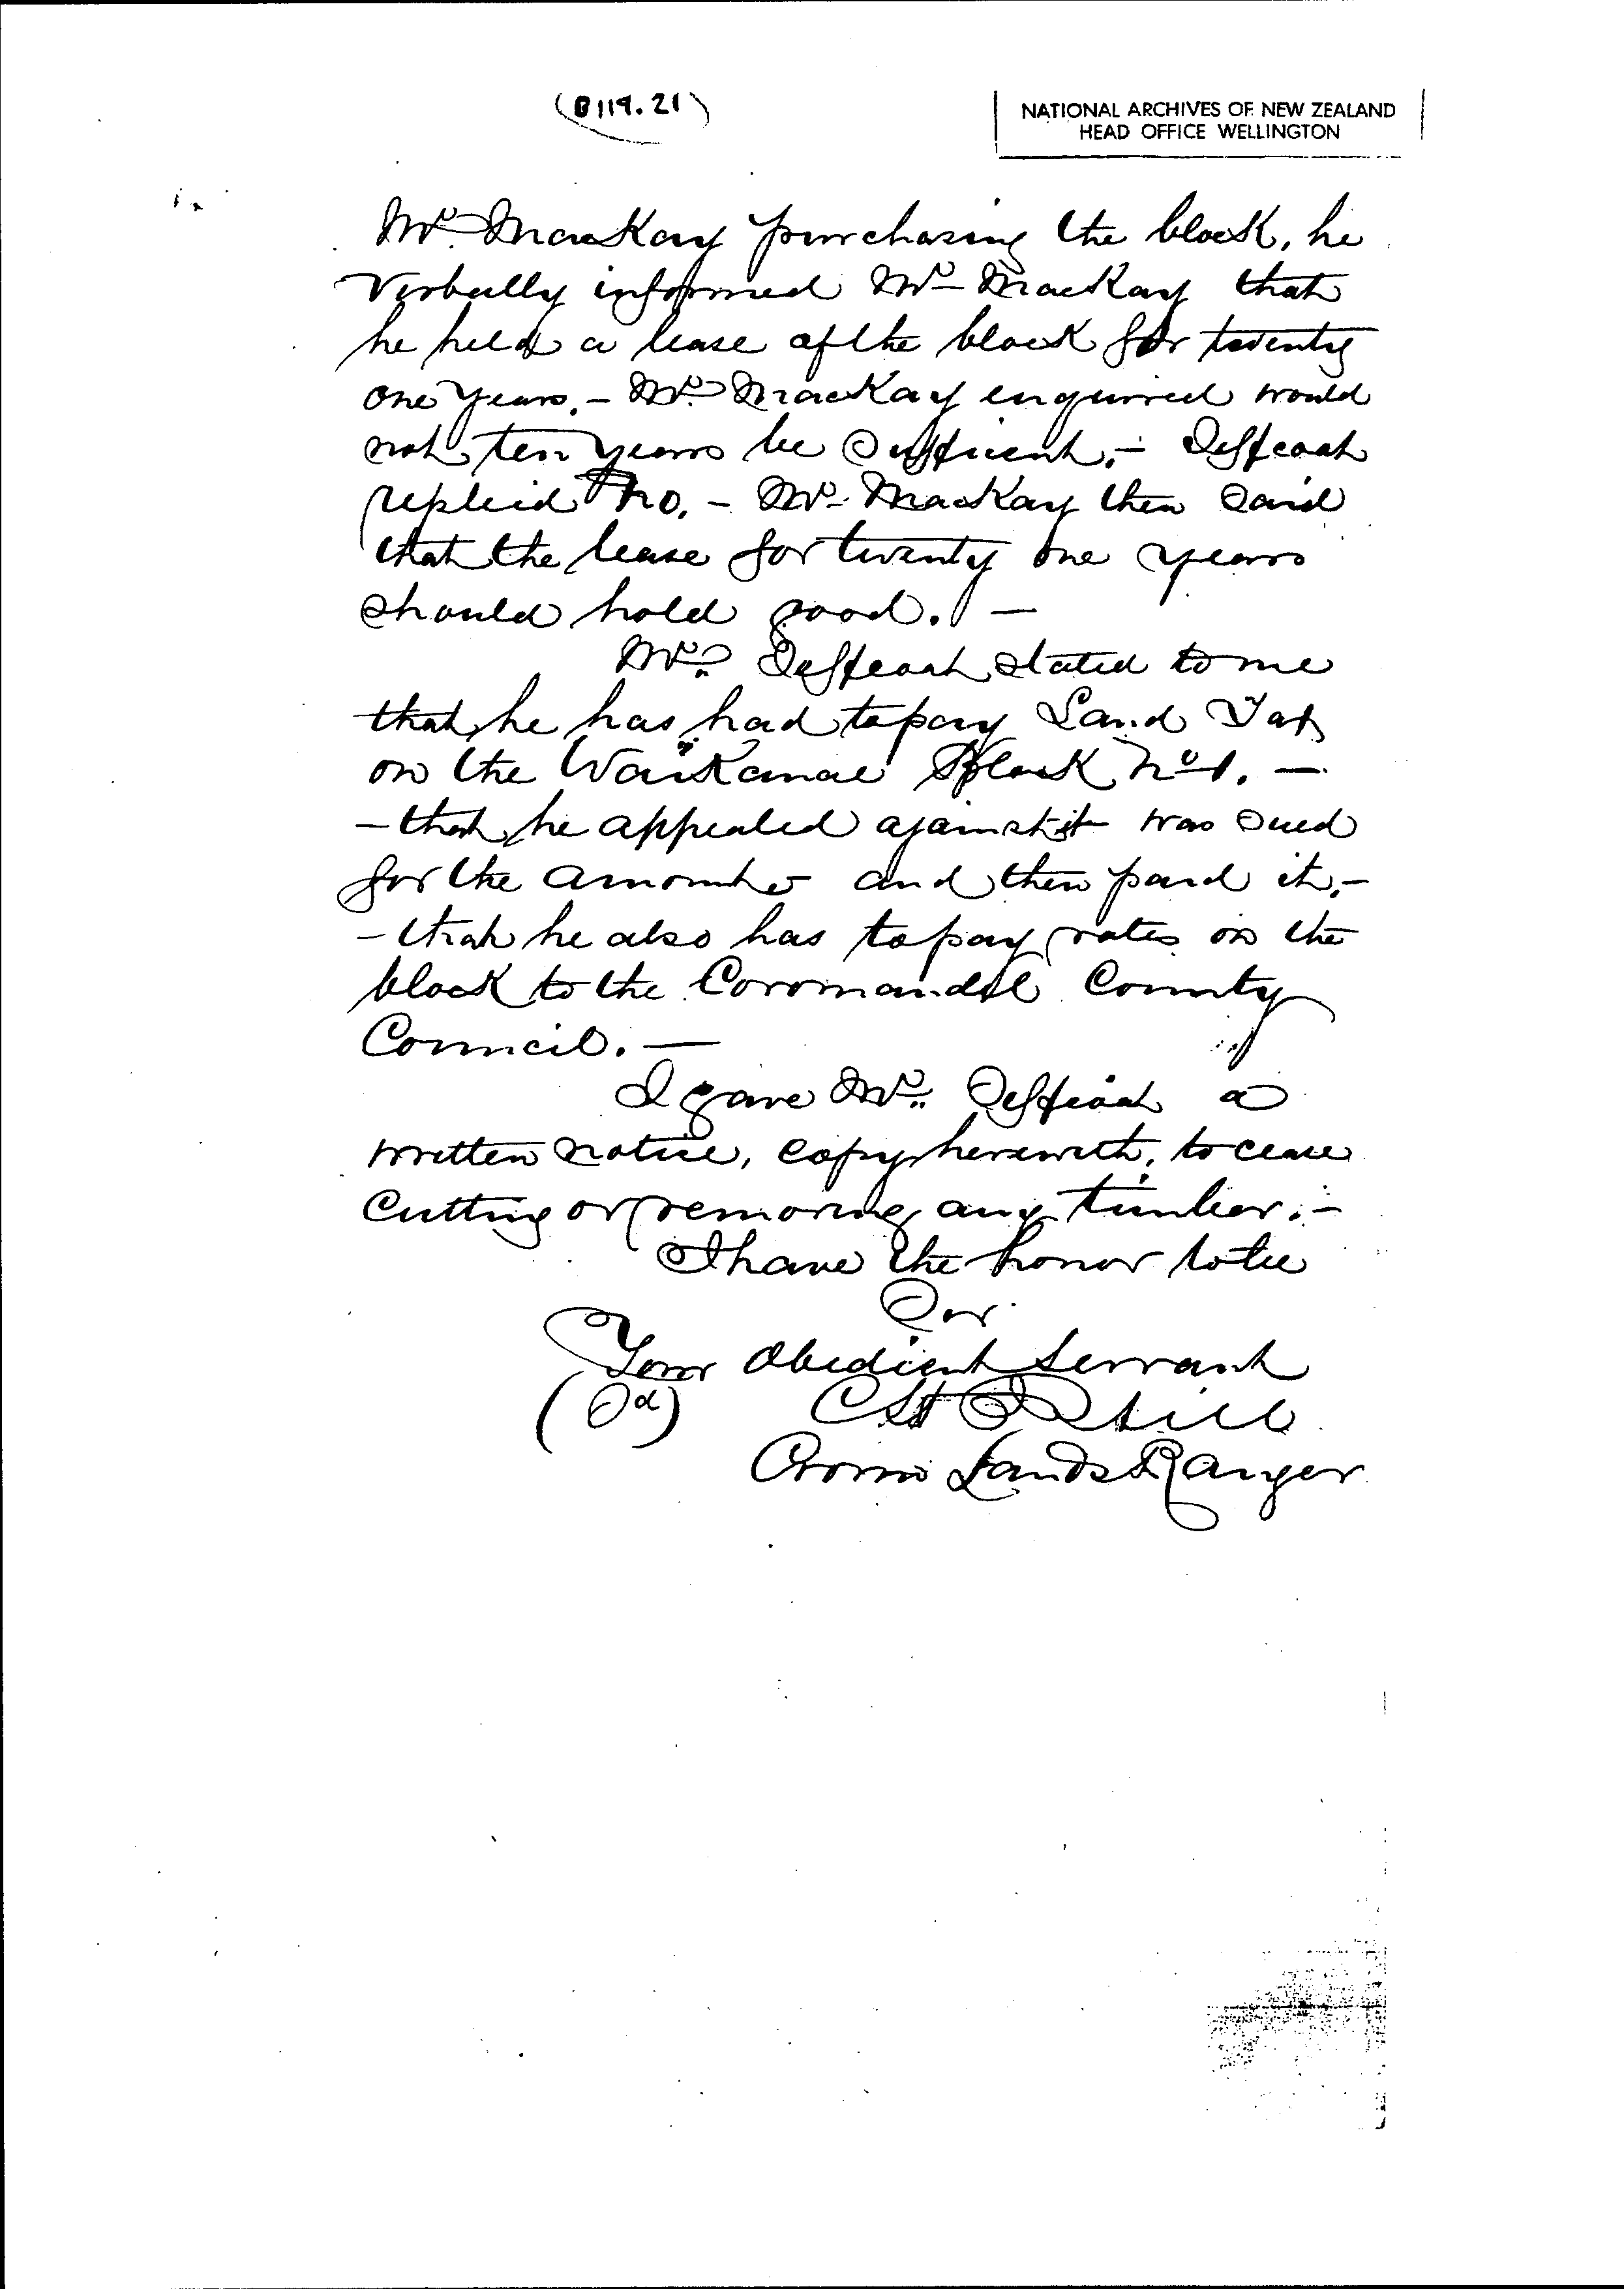 (B119.21)
NATIONAL ARCHIVES OF NEW ZEALAND
HEAD OFFICE WELLINGTON
Mr. MacKay purchasing the block, he
Verbally informed Mr MacKay that
he held a lease of the block for twenty
one years. – Mr. MacKay enquired would
not ten years be sufficient. –
replied No. – Mr. MacKay then said
that the lease for twenty one years
should hold good. –
Mr. stated to me
that he has had to pay Land Tax
on the Waikanae Block No 1. –
– that he appealed against it was sued
for the amount and then paid it. –
– that he also has to pay rates on the
block to the Coromandel County
Council. –
I gave Mr. a
written notice, copy herewith, to cease
Cutting or removing any timber. –
I have the honor to be
Sir
Your Obedient Servant
(Sd)
Crown Lands Ranger